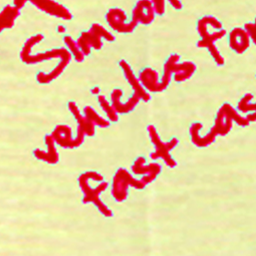 Simeon
vehicles for
fast cas